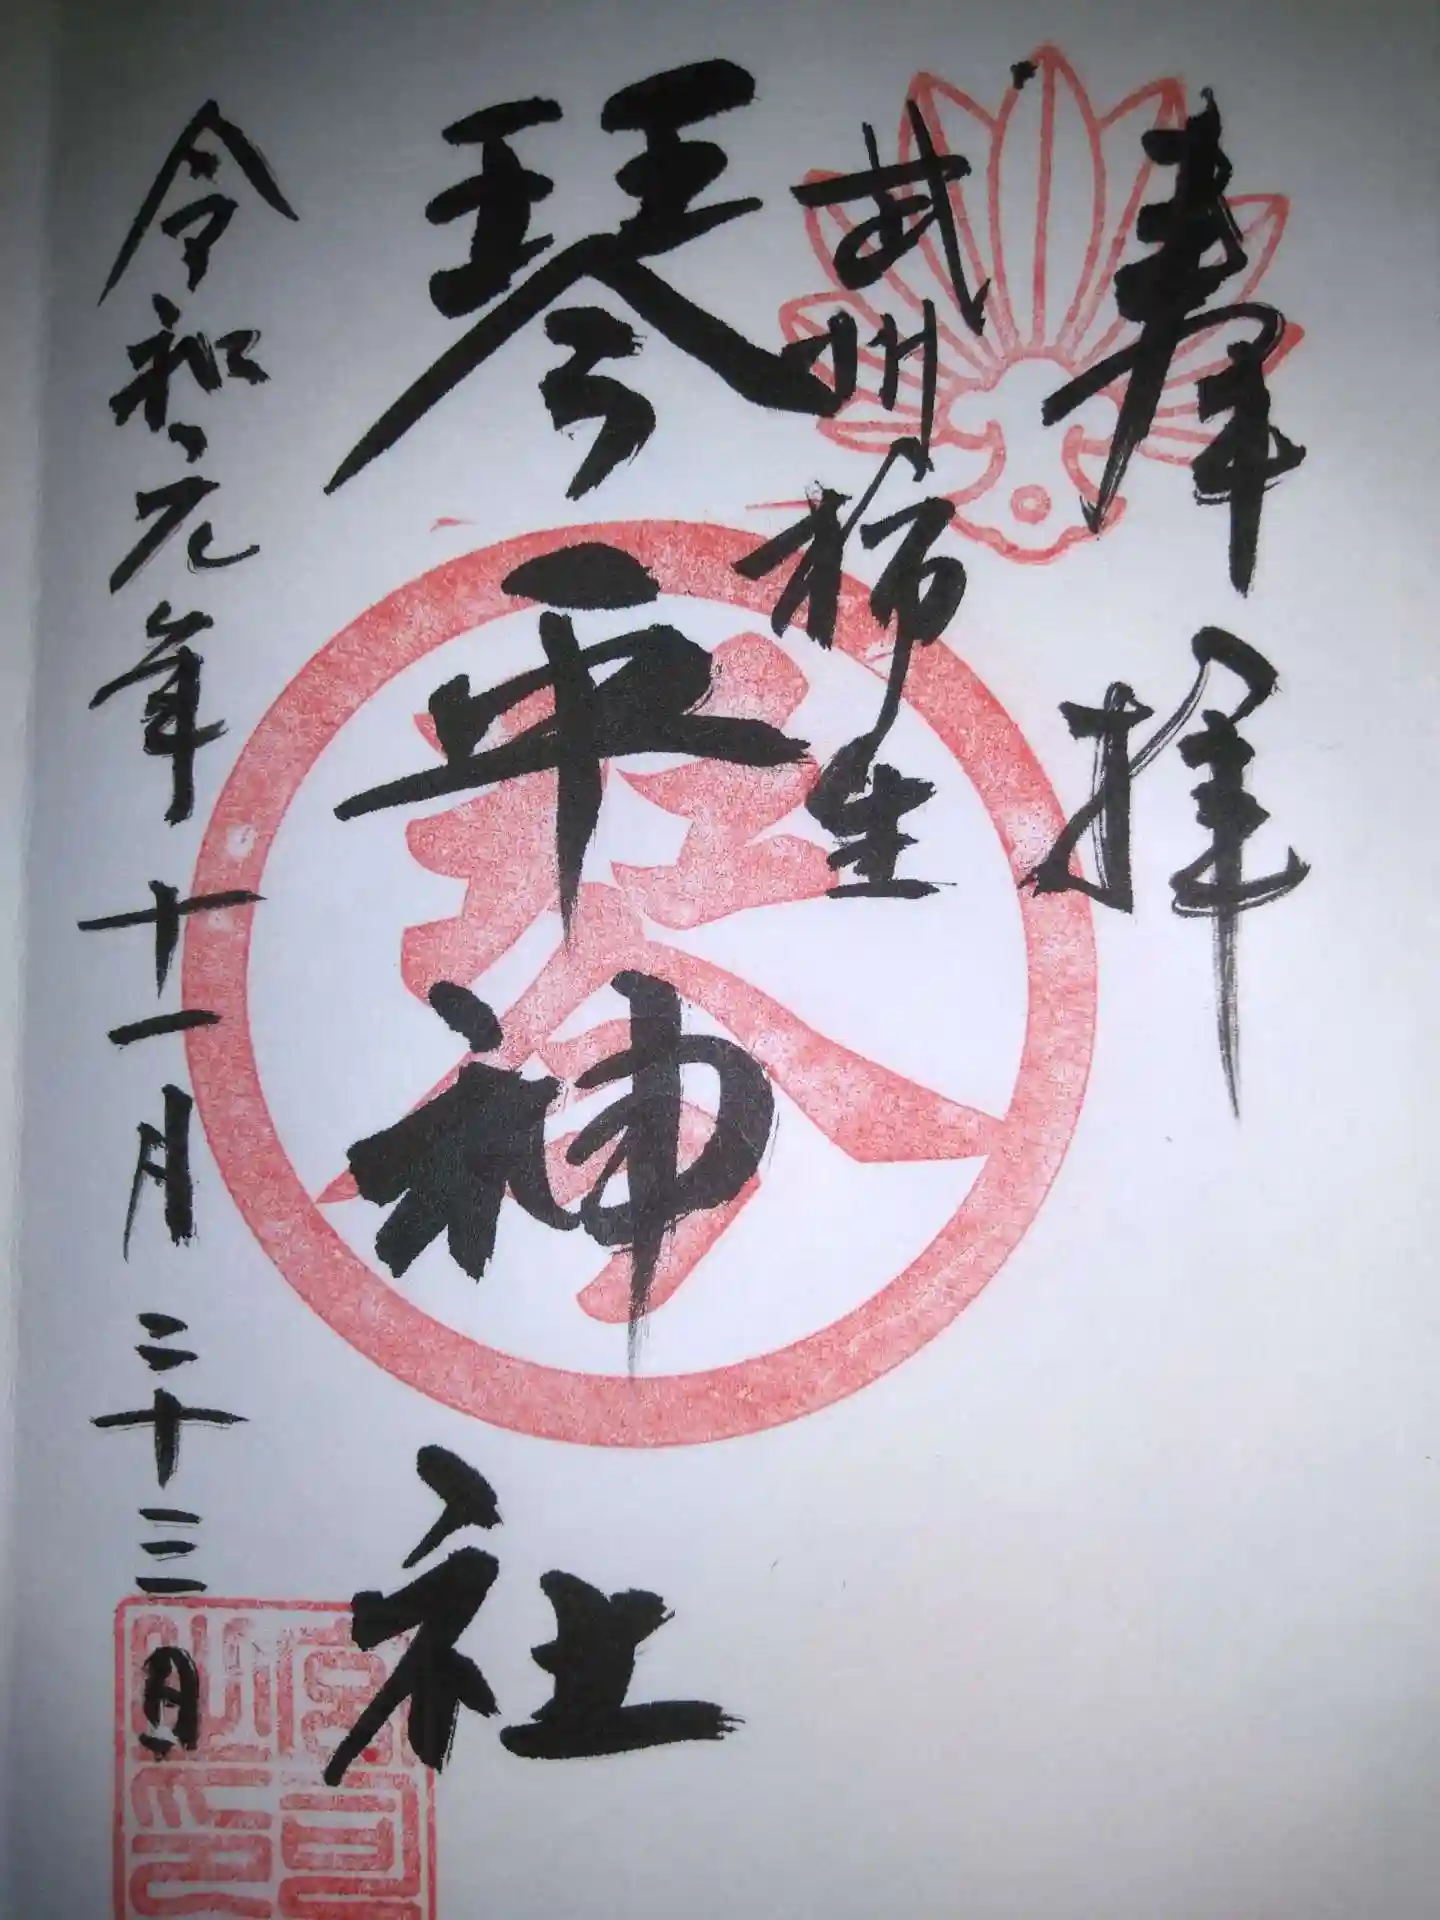 奉拝
武州柿生
琴平神社
令和元年十一月二十三日
琴
宮司之印